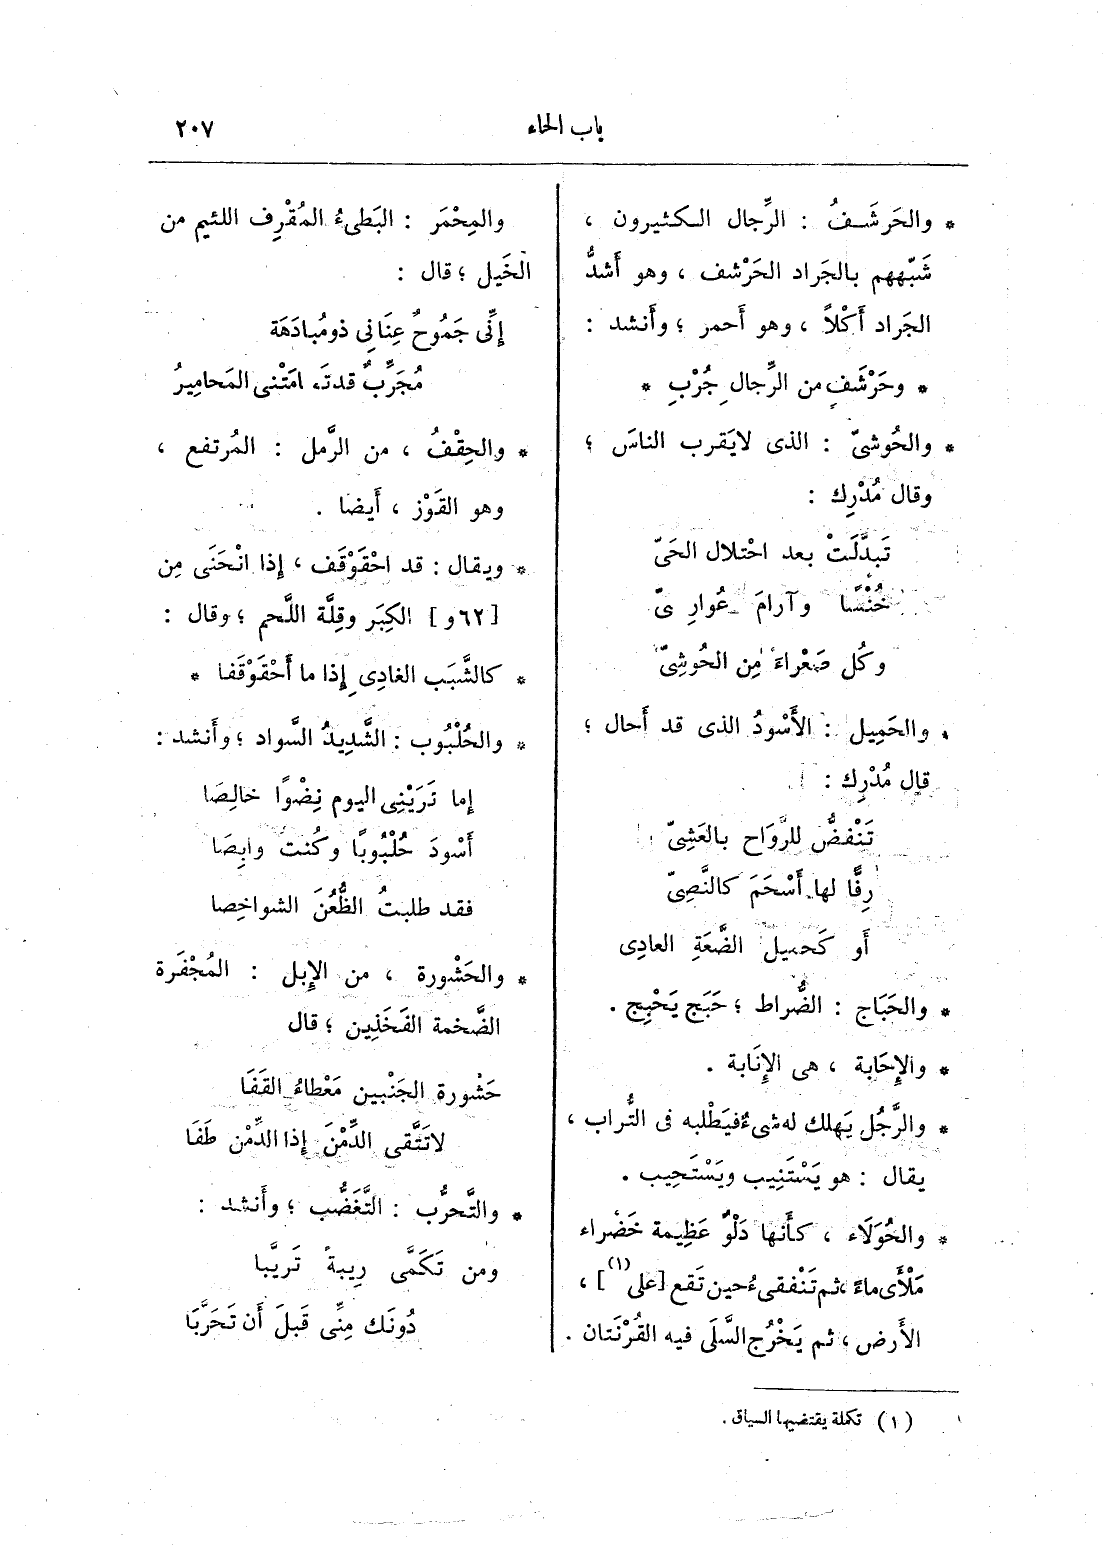 باب الحاء
٢٠٧
* والحَرشَفُ : الرِّجال الكثيرون ،
شَبّههم بالجَراد الحَرْشف ، وهو أَشدُّ
الجَراد أَكْلاً ، وهو أحمر ؛ وأَنشد :
* وحَرْشَفٍ من الرِّجال جُرْبِ *
* والحُوشىّ : الذى لايَقرب الناسَ ؛
وقال مُدْرِك :
تَبدَّلَتْ بعد احْتلال الحَىّ
خُنْسًا وآرامَ عُوارِىّ
وكُل صَعْراءَ مِن الحُوشِىّ
* والحَمِيل : الأَسْودُ الذى قد أَحال ؛
قال مُدْرِك :
تَنْفضُّ للرَّوَاح بالعَشِىّ
رِفًّا لها أَسْحَمَ كالنَّصِىّ
أو كَحميل الضَّعَةِ العادِى
* والحَبَاج : الضُّراط ؛ حَبَج يَحْبِج .
* والإِحَابة ، هى الإِنَابة .
* والرَّجُل يَهلك له شىءٌ فيَطْلبه فى التُّراب ،
يقال : هو يَسْتَنِيب ويَسْتَحِيب .
* والحُوَلَاء ، كأَنها دَلْوٌ عَظِيمة خَضْراء
مَلْأَى ماءً ، ثم تَنْفقىءُ حين تَقع [على (١)] ،
الأَرض ، ثم يَخْرُج السَّلَى فيه القُرْنَتان .
والمِحْمَر : البَطىءُ المُقْرِف اللئيم من
الخَيل ؛ قال :
إِنِّى جَمُوحٌ عِنَانِى ذو مُبادَهَة
مُجَرِّبٌ قد تَمَامَتْنى المَحامِيرُ
* والحِقْفُ ، من الرَّمل : المُرتفع ،
وهو القَوْز ، أَيضا .
* ويقال : قد احْقَوْقَف ، إِذا انْحَنَى مِن
[٦٢و] الكِبَر وقِلَّة اللَّحم ؛ وقال :
* كالشَّبَب الغادِى إِذا ما أحْقَوْقَفا *
* والحُلْبُوب : الشَّدِيدُ السَّواد ؛ وأَنشد :
إِما تَرَيْنِى اليوم نِضْوًا خالِصَا
أَسْودَ حُلْبُوبًا وكُنت وابِصَا
فقد طلبتُ الظُّعُنَ الشواخِصا
* والحَشْورة ، من الإِبل : المُجْفَرة
الضَّخمة الفَخَذِين ؛ قال
حَشْورة الجَنْبين مَعْطاءُ القَفَا
لاتَتَّقى الدِّمْنَ إِذا الدِّمْن طَفَا
* والتَّحرُّب : التَّغَضُّب ؛ وأَنشد :
ومن تَكَمَّى رِيبةً تَريَّبا
دُونَك مِنِّى قَبلَ أَن تَحَرَّبَا
(١) تكملة يقتضيها السياق .